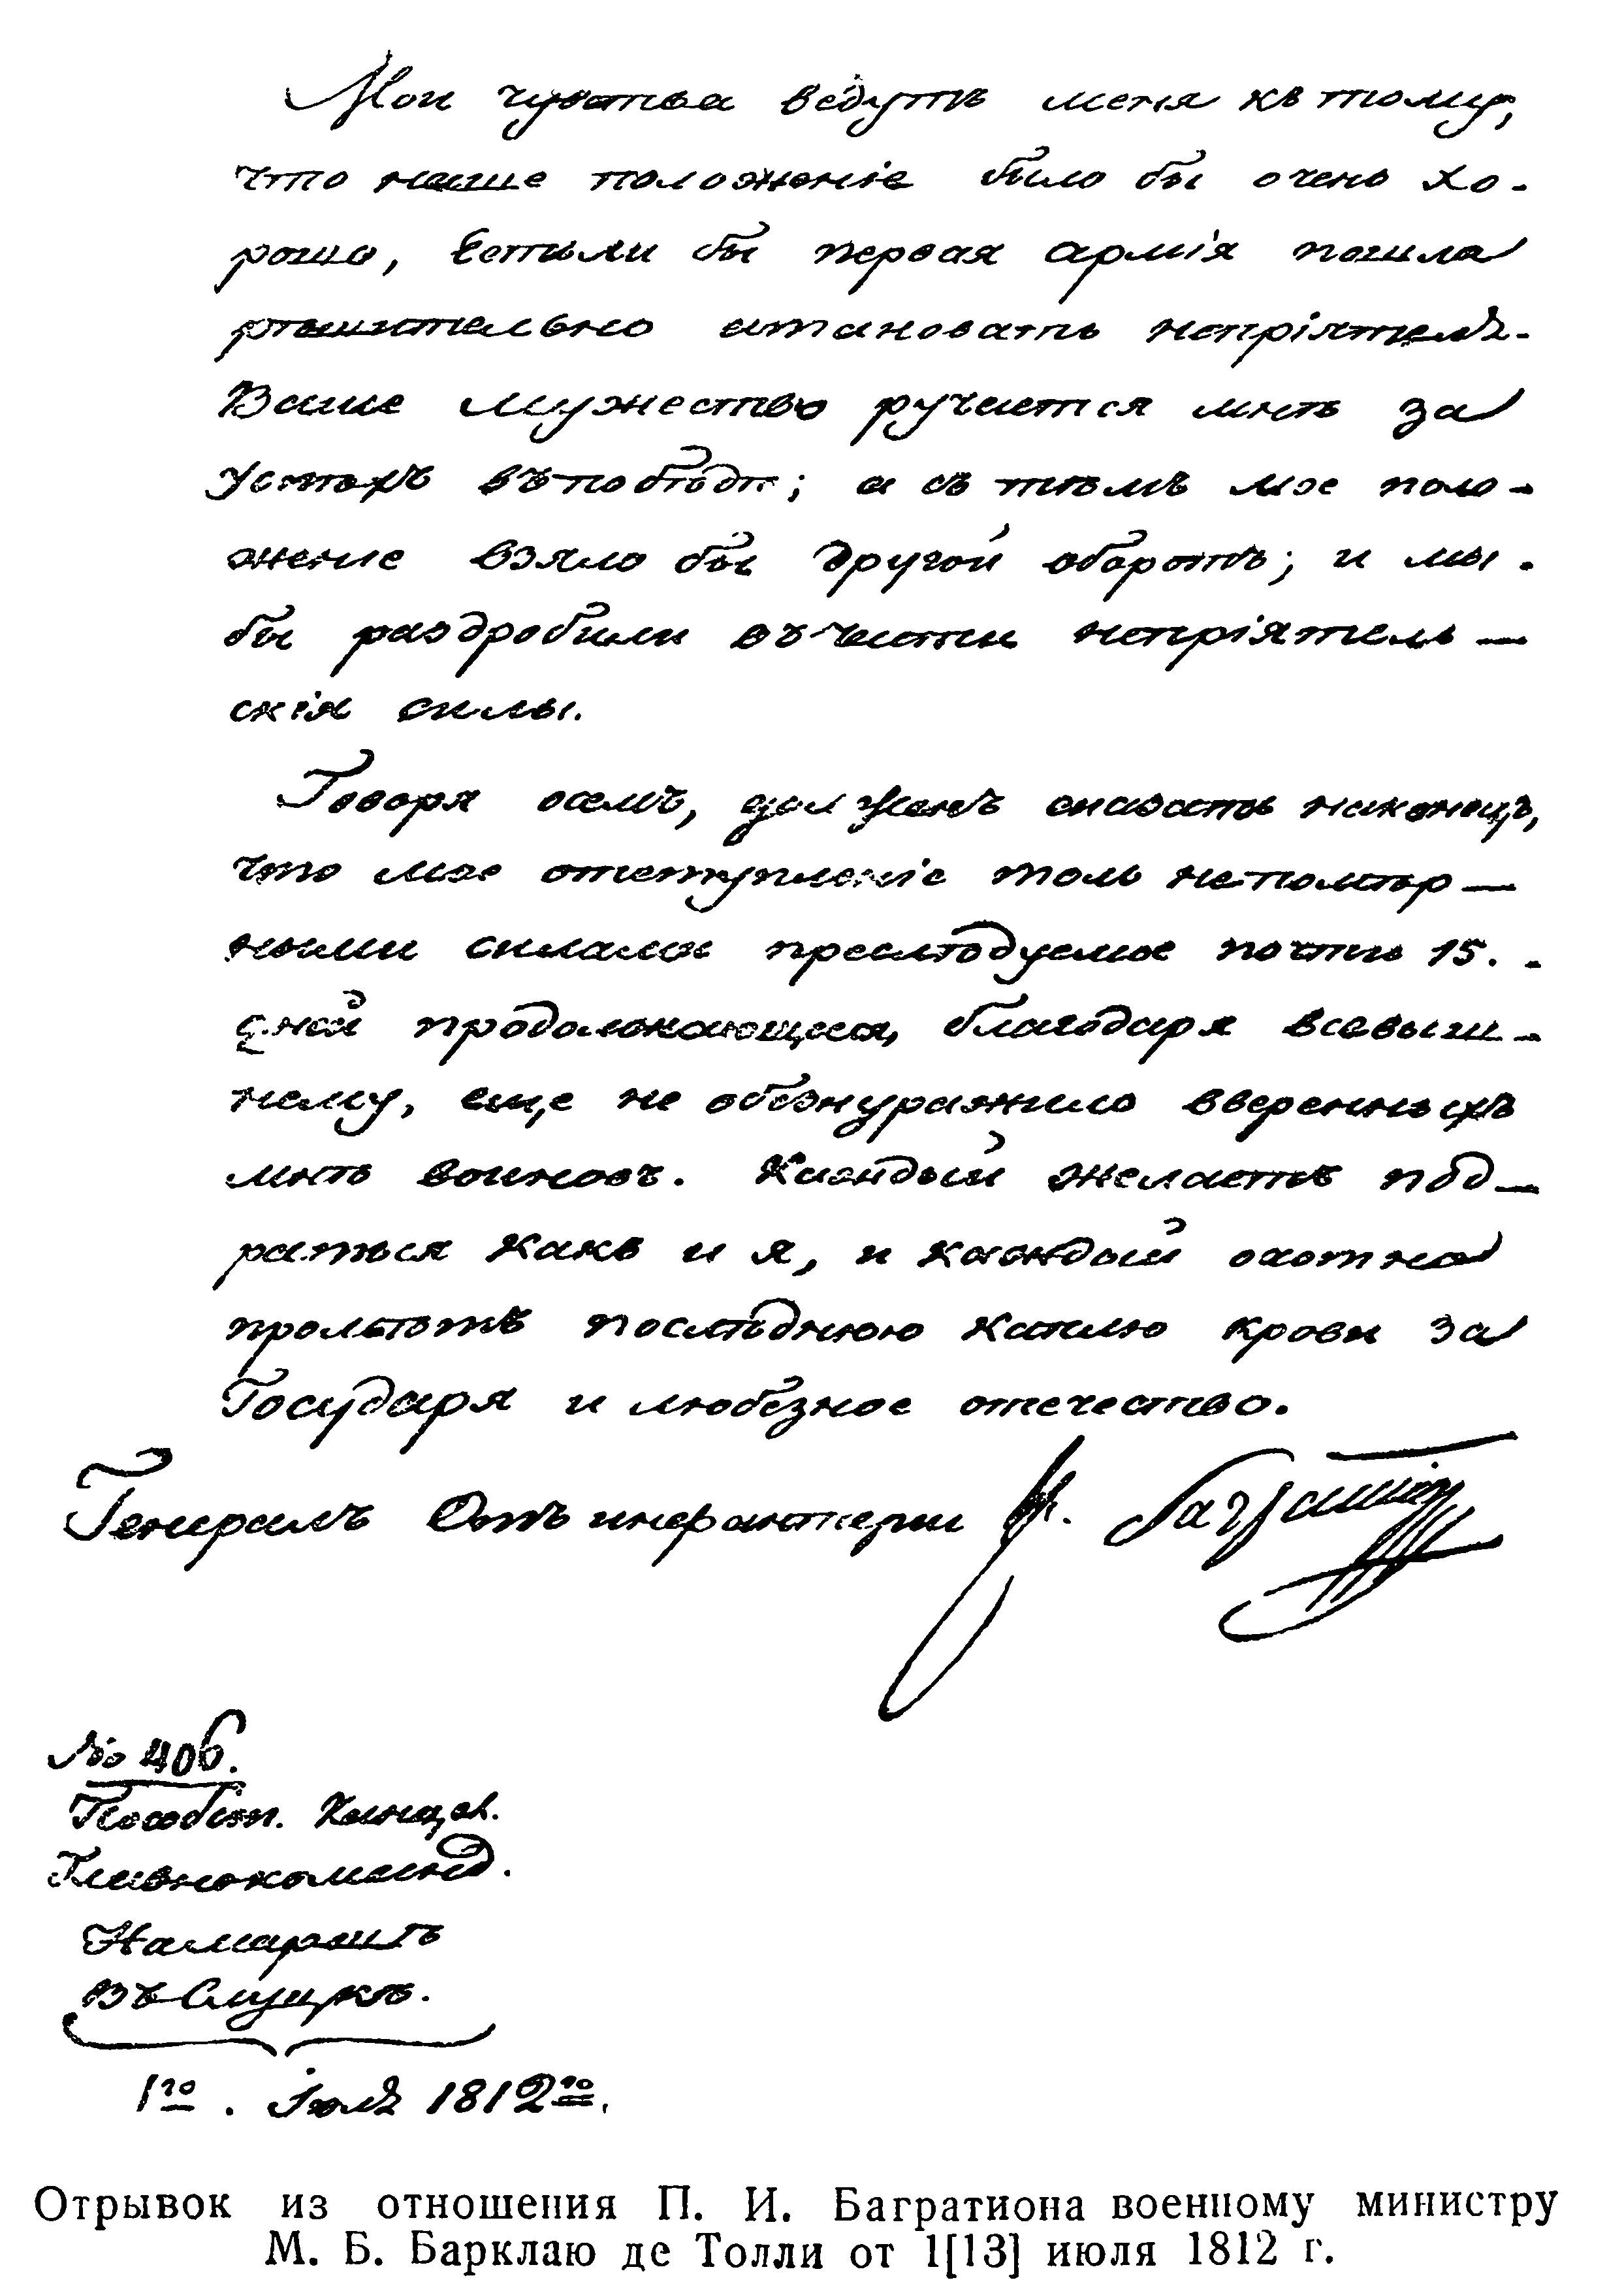 Мои чувства ведутъ меня къ тому,
что наше положеніе было бы очень хо-
рошо, Естьли бы первая армія пошла
рѣшительно атаковать непріятеля.
Ваше мужество ручается мнѣ за
успѣхъ въ побѣдѣ; а съ тѣмъ мое поло-
жение взяло бы другой оборотъ; и мы.
бы раздробили въ части непріятель—
скія силы.
Говоря о семъ, долженъ сказать наконецъ,
что мое отступленіе толь непомѣр—
ными силами преслѣдуемое почти 15.-
дней продолжающееся, благодаря всевыш-
нему, еще не обезкуражило вверенныхъ
мнѣ воиновъ. Каждый желаетъ под—
раться какъ и я, и каждый охотно
прольетъ послѣднюю каплю крови за
Государя и любезное отечество.
Генералъ Отъ инфрантерии К. Багратион
№ 406.
Пособст. Канцел.
Главнокоманд.
На маршѣ
Въ Слуцкѣ.
1го. Іюля 1812го.
Отрывок из отношения П. И. Багратиона военному министру
М. Б. Барклаю де Толли от 1[13] июля 1812 г.